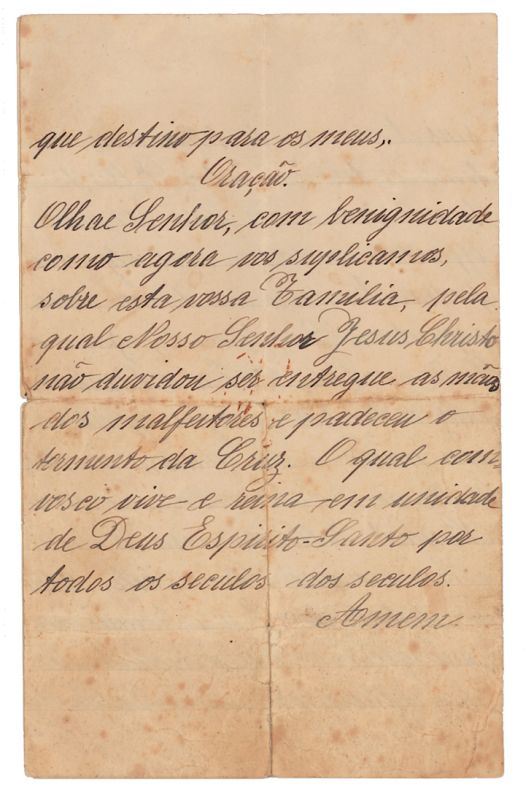 que destino para os meus,.
Oração.
Olhae Senhor, com benignidade
como agora vos suplicamos,
sobre esta vossa Familia, pela
qual Nosso Senhor Jesus Christo
não duvidou ser entregue as mãos
dos malfeitores e padeceu o
tormento da Cruz. O qual com-
vosco vive e reina em unidade
de Deus Espirito=Santo por
todos os seculos dos seculos.
Amem.